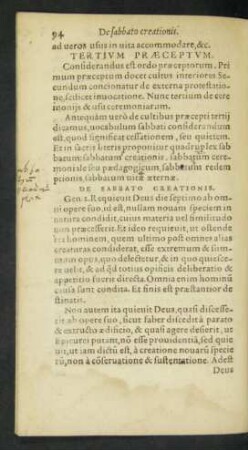 94 De sabbato creationis.
ad ueros usus in uita accommodare, &c.
TERTIVM PRÆCEPTVM.
Considerandus est ordo præceptorum. Pri
mum præceptum docet cultus interiores Se
cundum concionatur de externa protestatio
ne, scilicet inuocatione. Nunc tertium de cere
monijs & usu ceremoniarum.
Antequàm uerò de cultibus præcepti tertij
dicamus, uocabulum sabbati considerandum
est, quod significat cessationem, seu quietem.
Et in sacris literis proponitur quadruplex sab
batum: sabbatum creationis, sabbatum ceremo
niale seu pædagogicum, sabbatum redem
ptionis, sabbatum uitæ æternæ.
DE SABBATO CREATIONIS.
Gen. 2. Requieuit Deus die septimo ab om
ni opere suo, id est, nullam nouam speciem in
natura condidit, cuius materia uel similitudo
non præcesserit. Et ideo requieuit, ut ostende
ret hominem, quem ultimo post omnes alias
creaturas condiderat, esse extremum & sum
mum opus, quo delectetur, & in quo quiesce
re uelit, & ad quod totius opificii deliberatio &
aptitio fuerit directa. Omnia enim homini
causa sunt condita. Et finis est præstantior de
stinatis.
Non autem ita quieuit Deus, quasi discesse
rit ab opere suo, sicut faber discedit à parato
& extructo ædificio, & quasi agere desierit, ut
Epicurei putant, nō esse prouidentiā, sed quie
uit, ut iam dictū est, à creatione nouarū specie
rū, non à cōseruatione & sustentatione. Adest
Deus